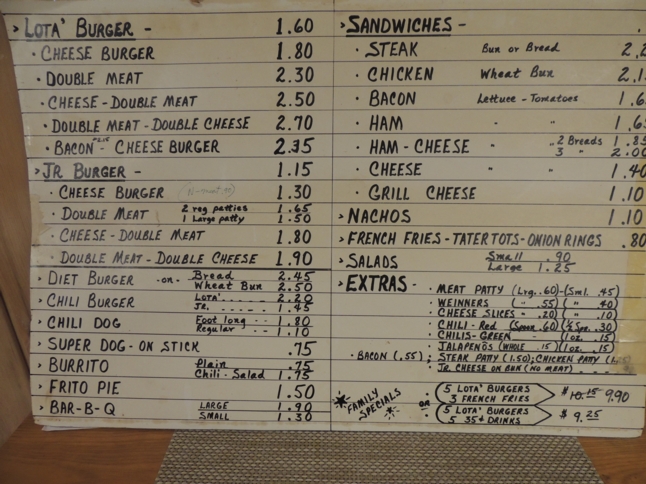 > LOTA' BURGER - 1.60
· CHEESE BURGER 1.80
· DOUBLE MEAT 2.30
· CHEESE - DOUBLE MEAT 2.50
· DOUBLE MEAT - DOUBLE CHEESE 2.70
· BACON - CHEESE BURGER 2.35
> JR. BURGER - 1.15
· CHEESE BURGER 1.30
· DOUBLE MEAT 2 reg patties 1.65
1 Large patty 1.50
· CHEESE - DOUBLE MEAT 1.80
· DOUBLE MEAT - DOUBLE CHEESE 1.90
> DIET BURGER - on - Bread 2.45
Wheat Bun 2.50
> CHILI BURGER LOTA' 2.20
JR. 1.45
> CHILI DOG Foot long 1.80
Regular 1.10
> SUPER DOG - ON STICK .75
> BURRITO Plain .75
Chili - Salad 1.75
> FRITO PIE 1.50
> BAR-B-Q LARGE 1.90
SMALL 1.30
> SANDWICHES -
· STEAK Bun or Bread
· CHICKEN Wheat Bun
· BACON Lettuce - Tomatoes
· HAM " "
· HAM - CHEESE " 2 Breads 1.85
3 " 2.00
· CHEESE " " 1.40
· GRILL CHEESE 1.10
> NACHOS 1.10
> FRENCH FRIES - TATER TOTS - ONION RINGS .80
> SALADS Small .90
Large 1.25
> EXTRAS - · MEAT PATTY (Lrg. .60) - (Sml. .45)
· WEINNERS ( " .55) ( " .40)
· CHEESE SLICES ( " .20) ( " .10)
· CHILI - Red (Spoon .60) (½ Spn. .30)
· CHILIS - GREEN (1oz. .15)
· JALAPEÑOS (WHOLE .15) (1oz. .15)
· BACON (.55) ; STEAK PATTY (1.50); CHICKEN PATTY
· JR. CHEESE ON BUN (NO MEAT)
FAMILY SPECIALS · 5 LOTA' BURGERS
3 FRENCH FRIES $ 10.15 9.90
OR · 5 LOTA' BURGERS
5 35¢ DRINKS $ 9.25